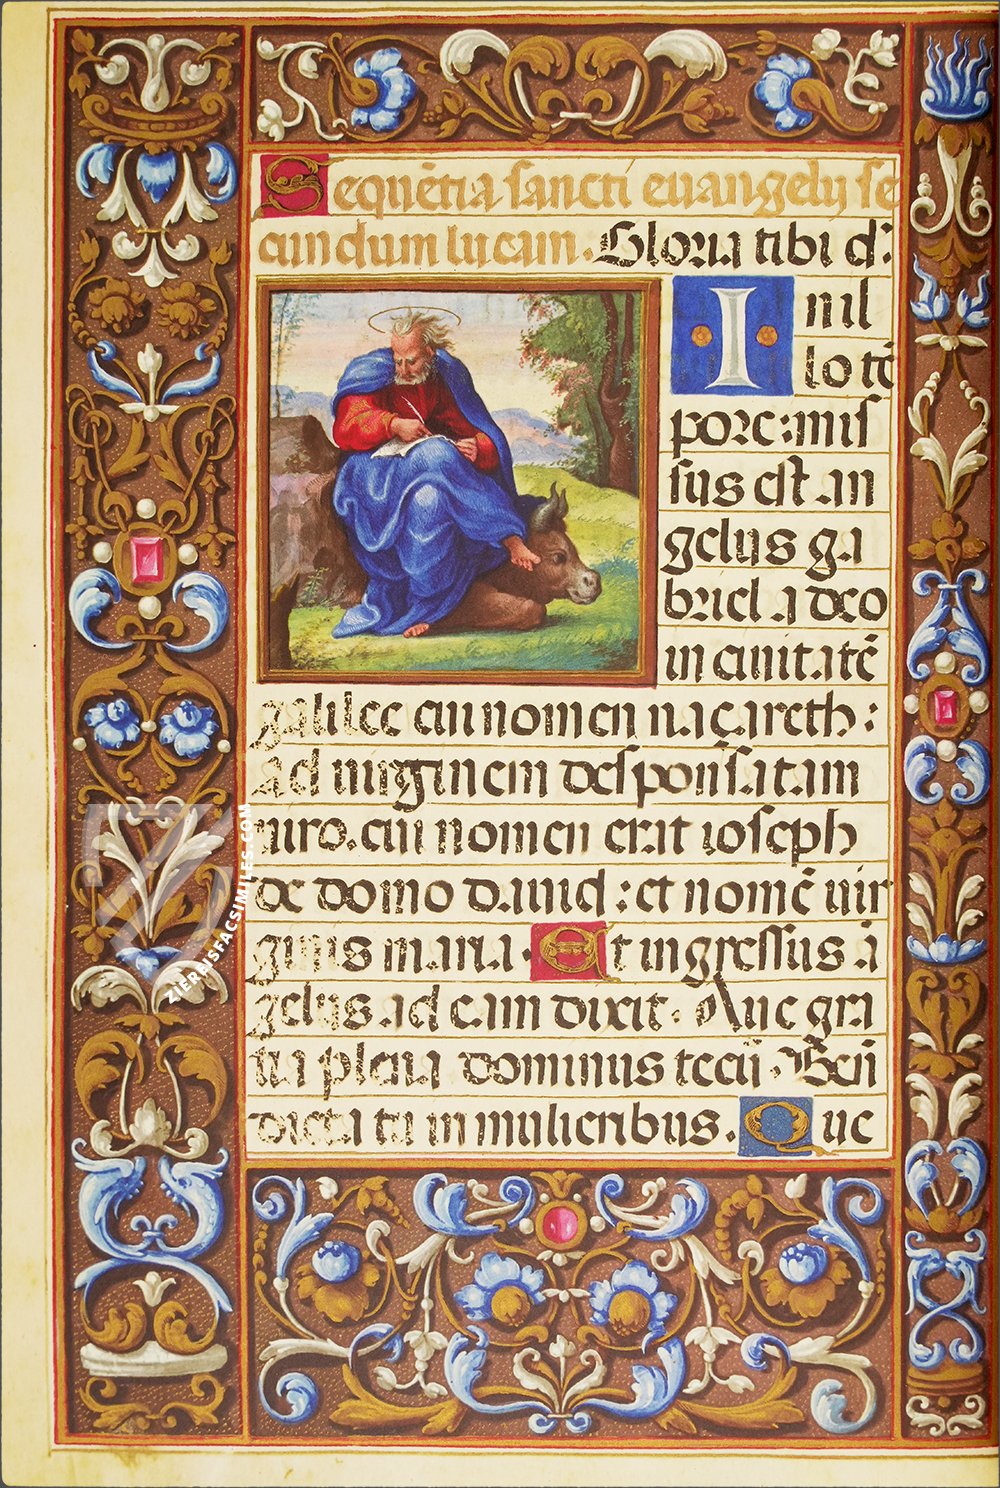 Sequẽtia sancti euangelij se
cundum lucam. Gloria tibi dˀ.
In il
lo tẽ
pore: mis
sus est an
gelus ga
briel a deo
in ciuitatẽ
galilee cui nomen naçareth:
ad uirginem desponsatam
uiro. cui nomen erat ioseph
de domo dauid: et nomẽ uir
ginis maria. Et ingressus ã
gelus ad eam dixit. Aue gra
tia plena dominus tecũ. Benẽ
dicta tu in mulieribus. Que
ZIEREISFACSIMILES.COM